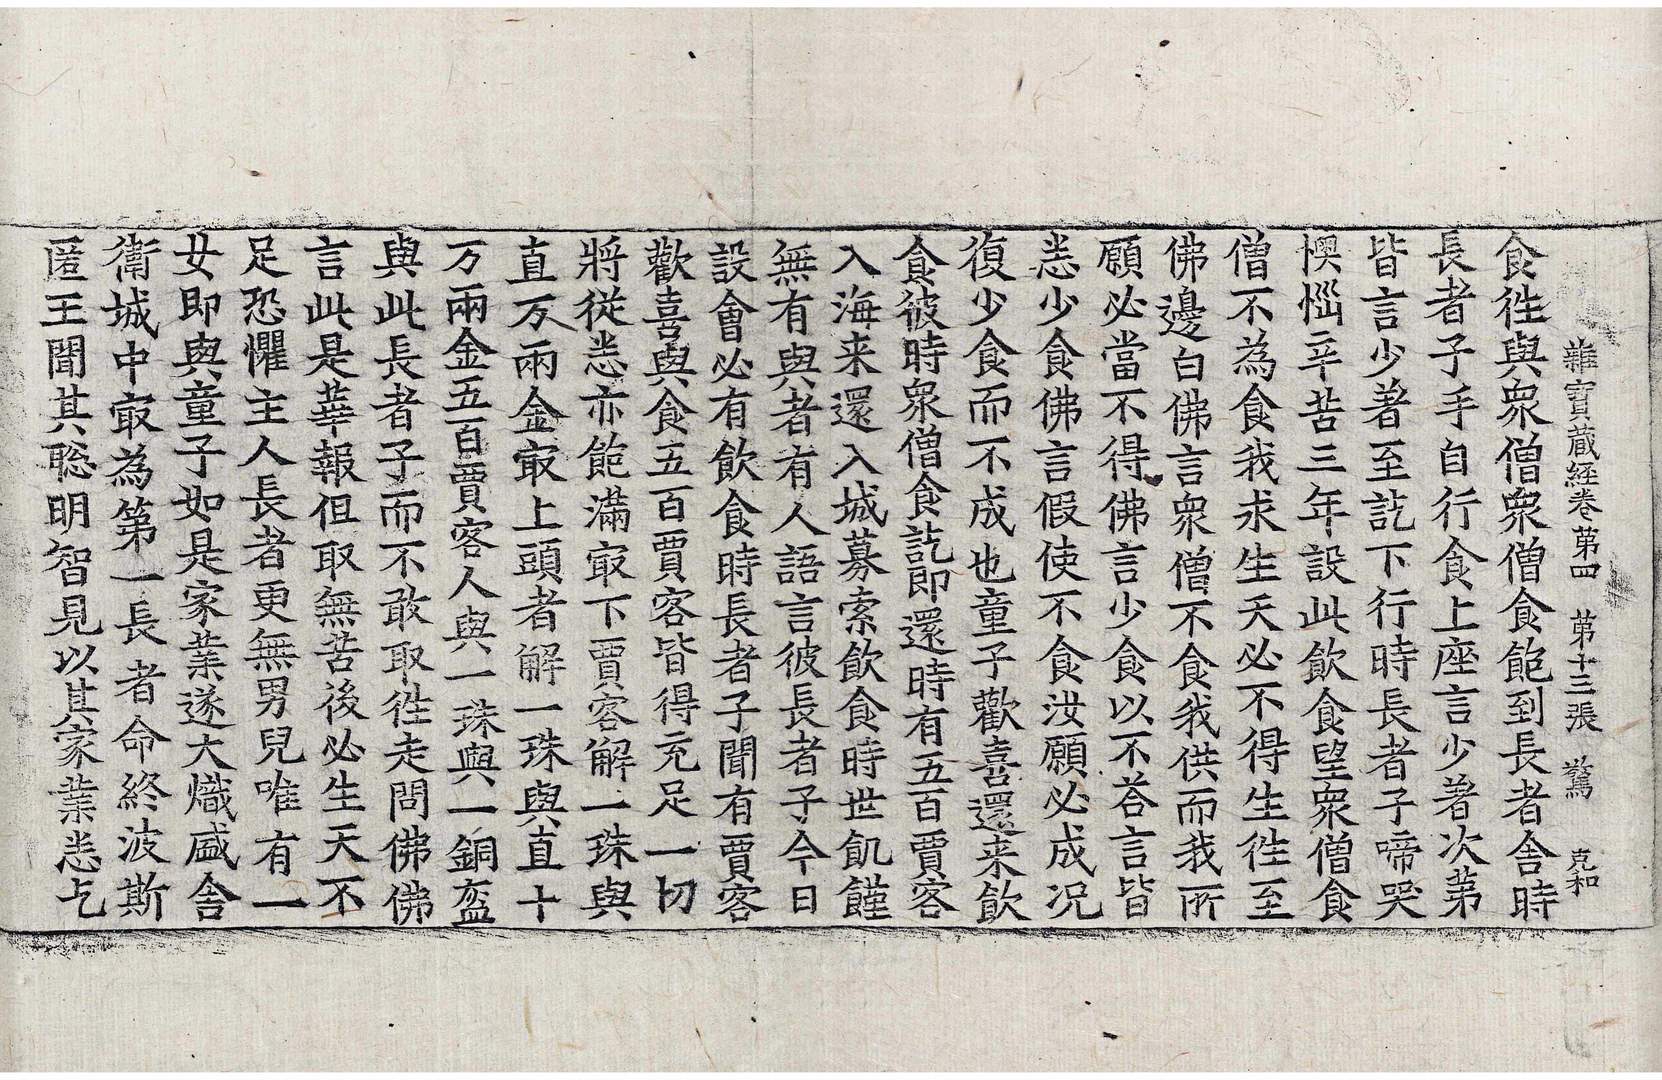 雜寶蔵経卷第四　第十三張　驚　克和
食徃與衆僧衆僧食飽到長者舎時
長者子手自行食上座言少著次第
皆言少著至訖下行時長者子啼哭
懊惱辛苦三年設此飲食望衆僧食
僧不為食我求生天必不得生徃至
佛邊白佛言衆僧不食我供而我所
願必當不得佛言少食以不荅言皆
悉少食佛言假使不食汝願必成况
復少食而不成也童子歡喜還来飲
食彼時衆僧食訖即還時有五百賈客
入海来還入城募索飲食時世飢饉
無有與者有人語言彼長者子今日
設會必有飲食時長者子聞有賈客
歡喜與食五百賈客皆得充足一切
將從悉亦飽滿㝡下賈客解一珠與
直万兩金㝡上頭者解一珠與直十
万兩金五百賈客人與一珠與一銅盔
與此長者子而不敢取徃走問佛佛
言此是華報但取無苦後必生天不
足恐懼主人長者更無男兒唯有一
女即與童子如是家業遂大熾盛舎
衛城中㝡為第一長者命終波斯
匿王聞其聡明智見以其家業悉乞